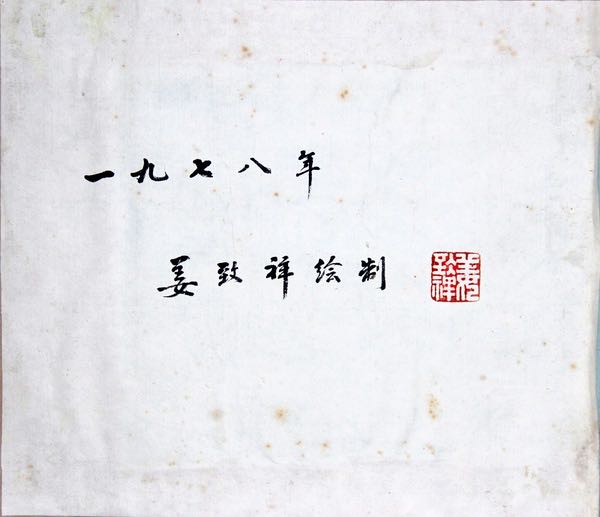 一九七八年
姜致祥绘制
姜致祥